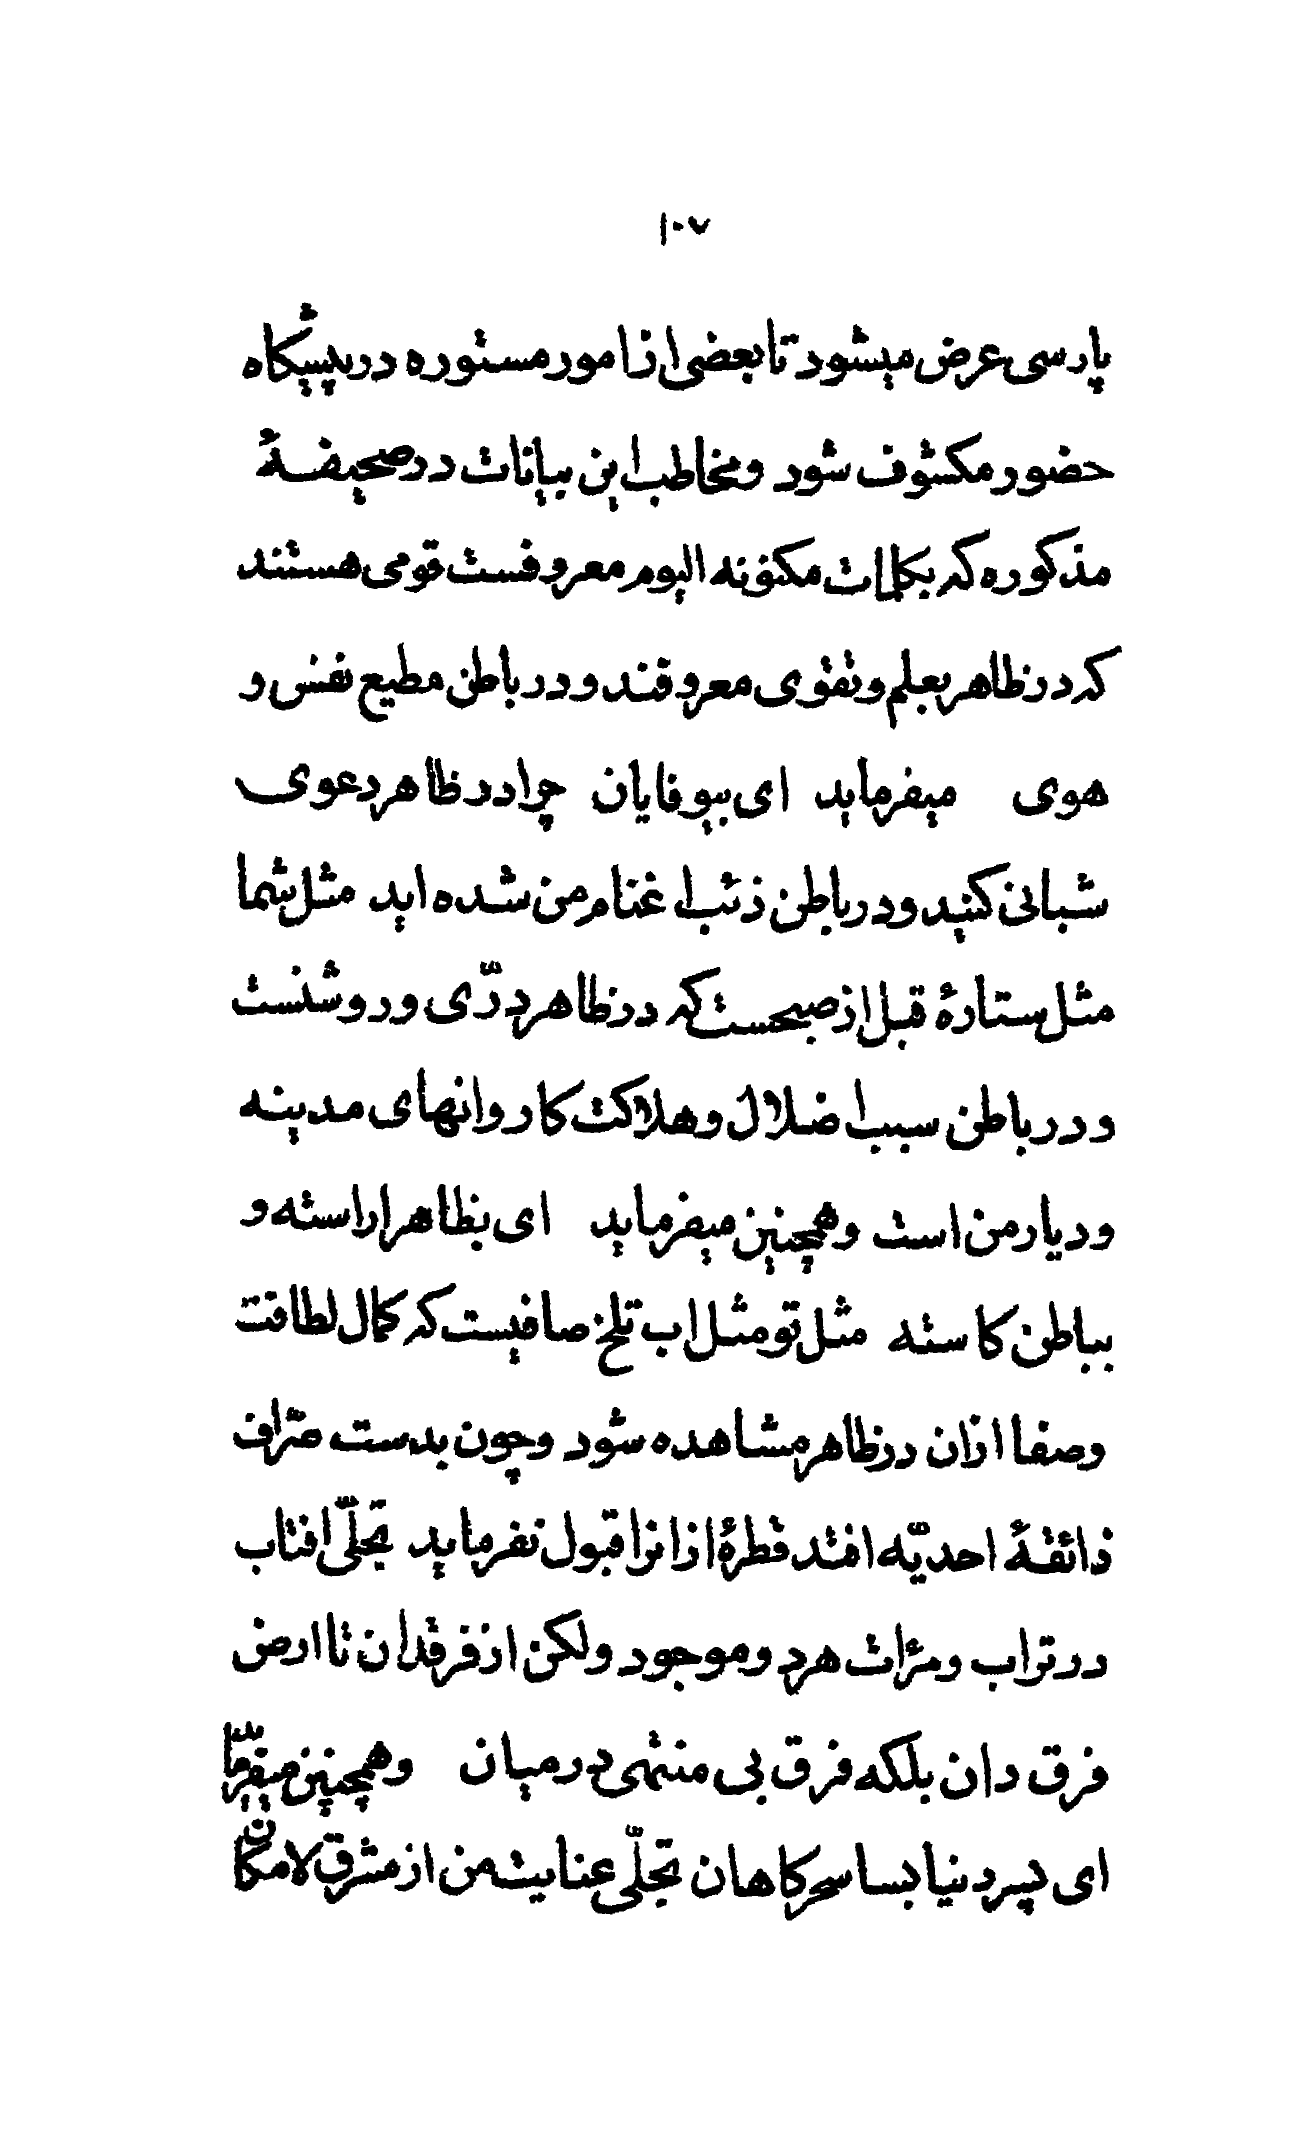 ١٠٧
پارسی عرض میشود تا بعضی از امور مستوره در پیشگاه
حضور مکشوف شود و مخاطب این بیانات در صحیفهٔ
مذکوره که بکلمات مکنونه الیوم معروفست قومی هستند
که در ظاهر بعلم و تقوی معروفند و در باطن مطیع نفس و
هوی میفرماید ای بیوفایان چرا در ظاهر دعوی
شبانی کنید و در باطن ذئب اغنام من شده اید مثل شما
مثل ستارهٔ قبل از صبحست که در ظاهر درّی و روشنست
و در باطن سبب اضلال و هلاکت کاروانهای مدینه
و دیار من است و همچنین میفرماید ای بظاهر اراسته و
بباطن کاسته مثل تو مثل اب تلخ صافیست که کمال لطافت
و صفا از ان در ظاهر مشاهده شود و چون بدست صرّاف
ذائقهٔ احدیّه افتد قطرهٔ از انرا قبول نفرماید تجلّی افتاب
در تراب و مرٔات هر دو موجود ولکن از فرقدان تا ارض
فرق دان بلکه فرق بی منتهی در میان و همچنین میفرما
ای پسر دنیا بسا سحرکاهان تجلّی عنایت من از مشرق لامکان